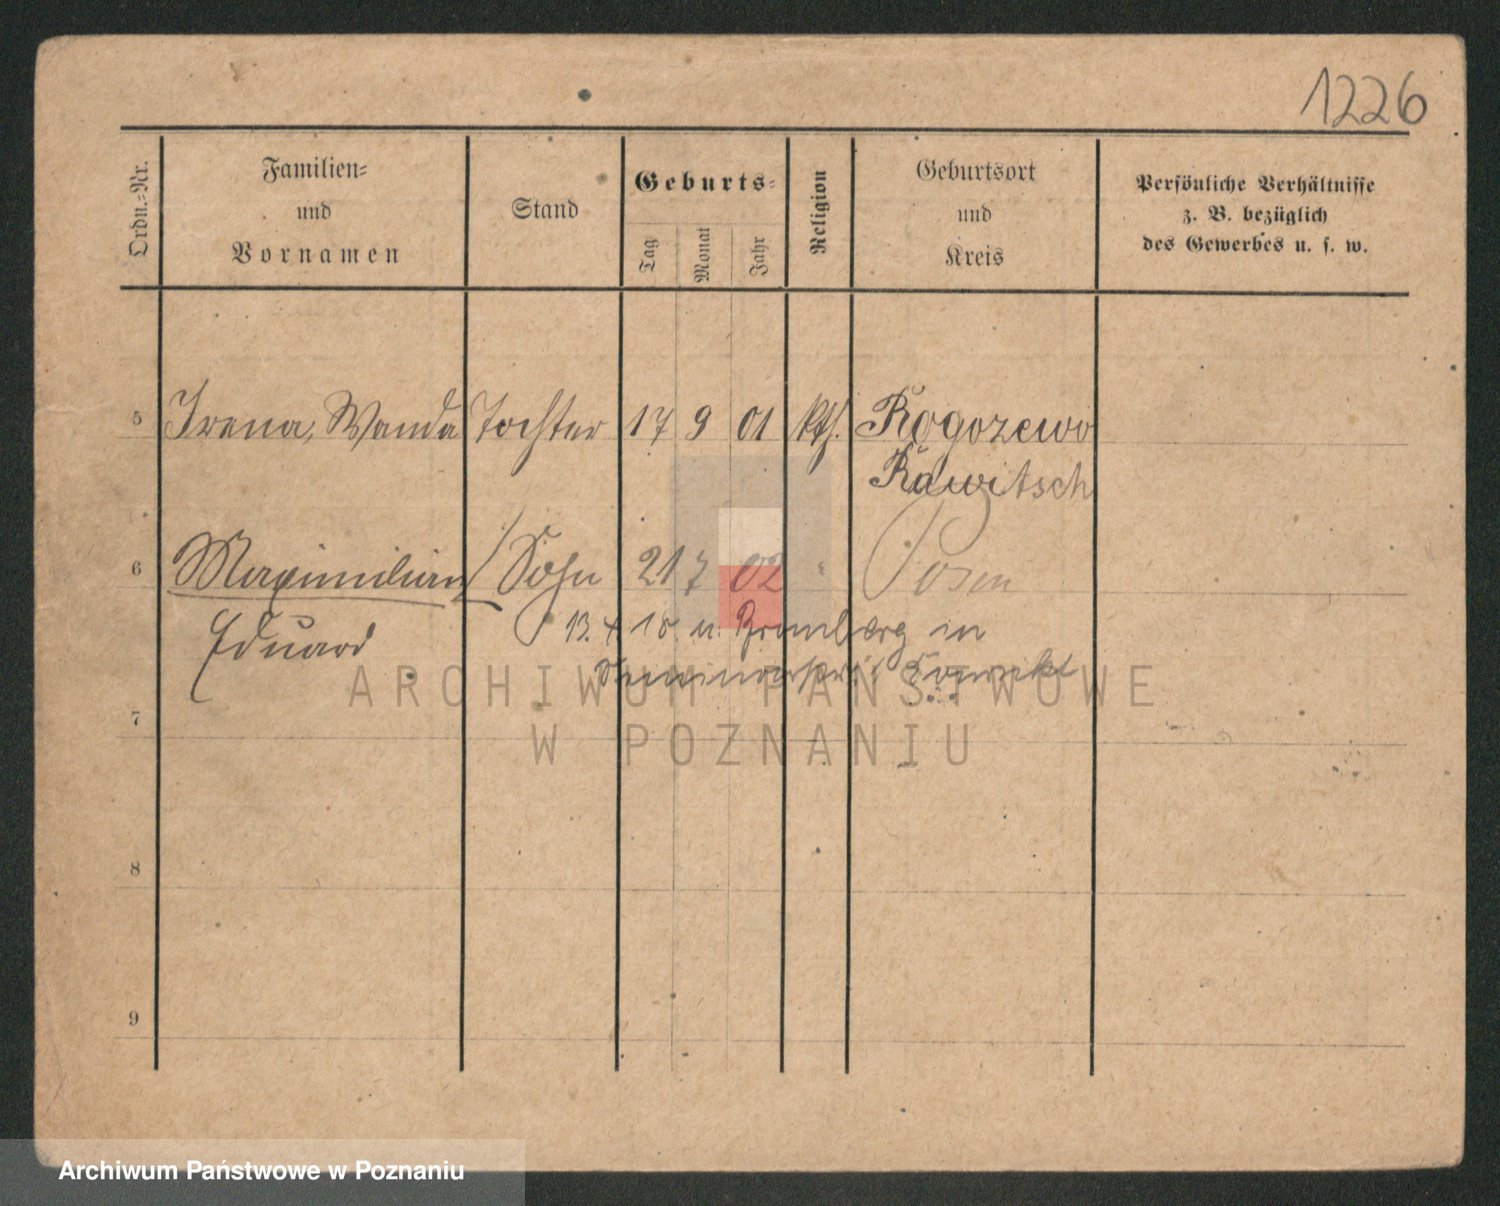 1226
Ordn.-Nr.
Familien-
und
Vornamen
Stand
Geburts-
Tag
Monat
Jahr
Religion
Geburtsort
und
Kreis
Persönliche Verhältnisse
z. B. bezüglich
des Gewerbes u. s. w.
5 Irena, Wanda Tochter 17 9 01 kth. Rogozewo
Rawitsch
6 Maximilian Sohn 21 7 02 Posen
Eduard
13. 4 18 n. Bromberg in
ARCHIWUM PAŃSTWOWE
W POZNANIU
7
8
9
Archiwum Państwowe w Poznaniu